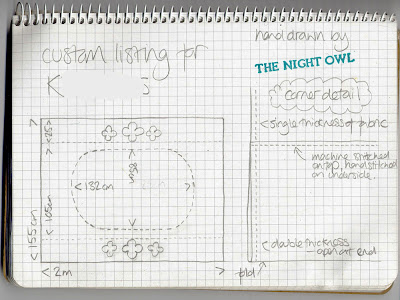 custom listing for
K
hand drawn by
THE NIGHT OWL
corner detail
< single thickness of fabric
machine stitched
on top, hand stitched
on underside.
< 25 >
155cm
105cm
< 132cm >
< 2m >
< double thickness
- open at end
fold